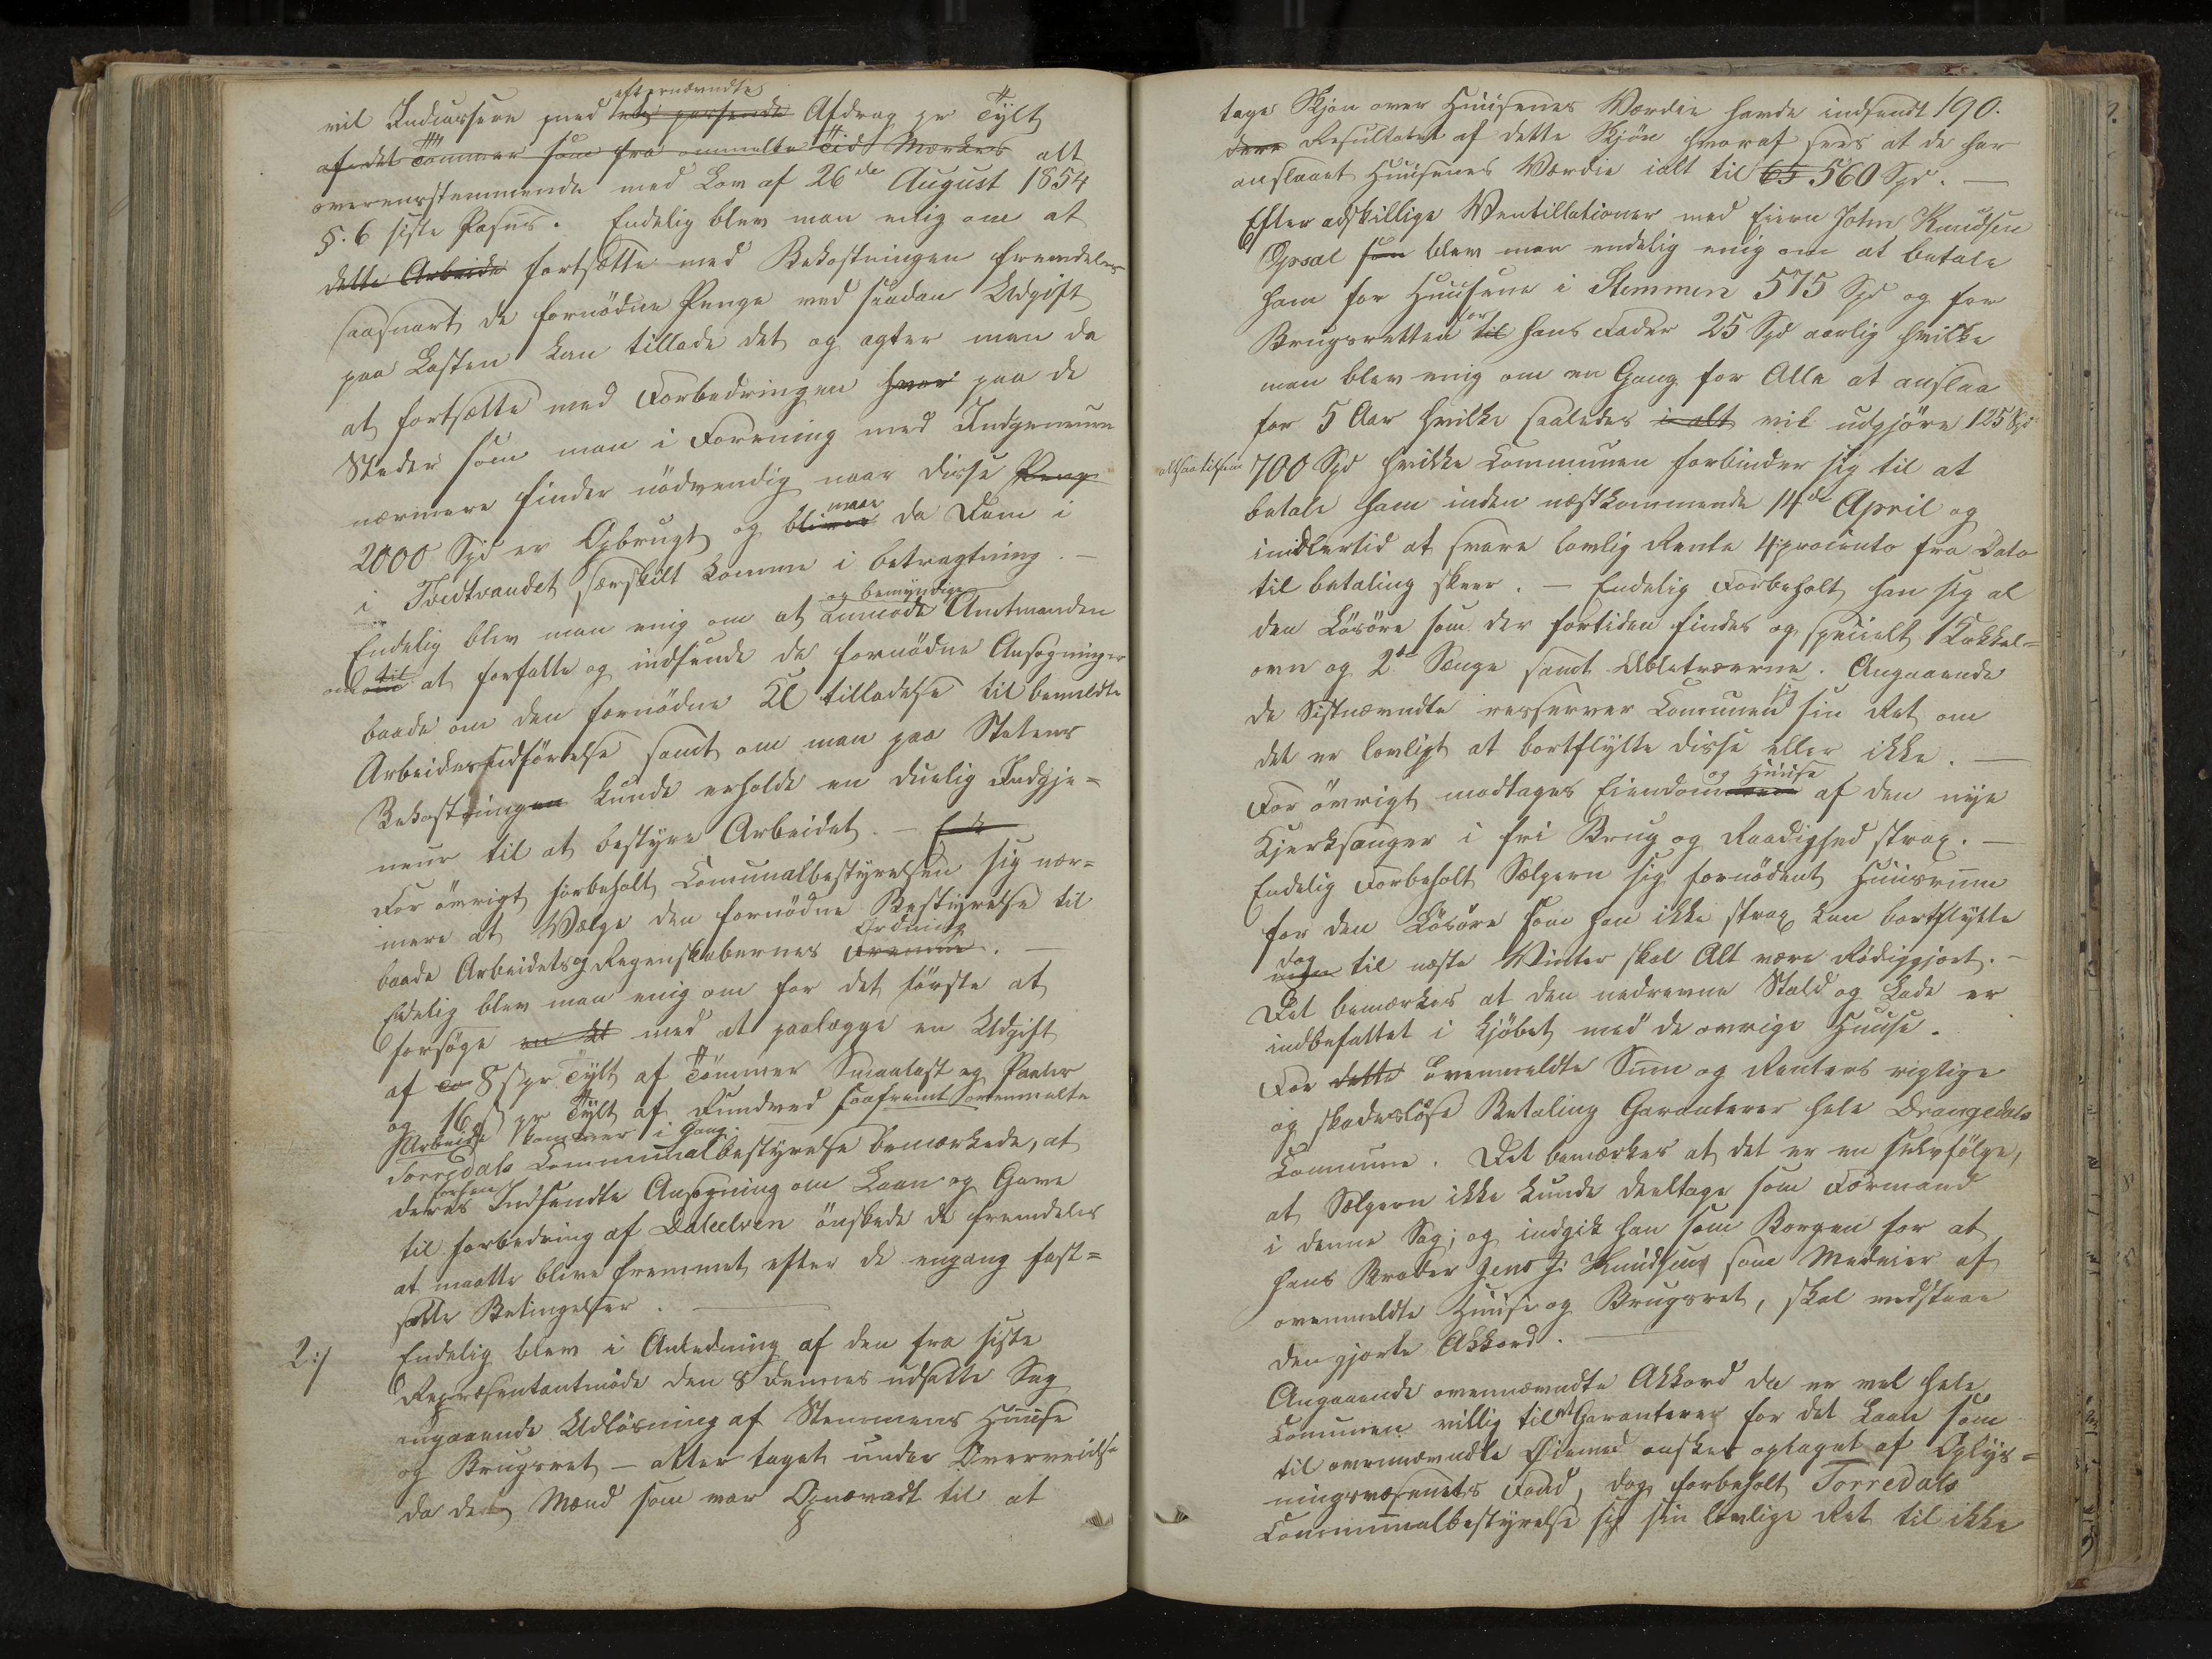 vil Indcassere med efternævndte et passende Afdrag pr Tylt
af det Tømmer som fra ommeldte Tid Mærkes alt
overensstemmende med Lov af 26de August 1854
§. 6 siste Pasus. Endelig blev man enig om at
dette Arbeide fortsætte med Bekostningen fremdeles
saasnart de fornødne Penge ved saadan Udgift
paa Lasten kan tillade det og agter man da
at fortsætte med Forbedringen hvor paa de
Steder som man i Forening med Indgeneuren
nærmere finder nødvendig naar disse Penge
2000 Spd er Opbrugt og bliver maae da Dam i
i Tvedtvandet særskilt komme i betragtning. —
Endelig blev man enig om at anmode og bemyndige Amtmanden
om til at forfatte og indsende de fornødne Ansøgninger
baade om den fornødne Kl tilladelse til bemeldte
Arbeidersudførelse samt om man paa Statens
Bekostningen kunde erholde en duelig Indgje-
neur til at bestyre Arbeidet. —
For øvrigt forbeholt Comunalbestyrelsen sig nær-
mere at Vælge den fornødne Bestyrelse til
baade Arbeidets og Regenskabernes Fremme Ordning. —
Endelig blev man enig om for det første at
forsøge en Ud med at paalægge en Udgift
af to 8 s pr Tylt af Tømmer Smaalast og Pæler
og 16 s pr Tylt af Rundved saaframt Ovenmeldte
Arbeide kommer i Gang.
Torredals Communalbestyrelse bemærkede, at
deres forhen Indsendte Ansøgning om Laan og Gave
til forbedring af Daleelven ønskede de fremdeles
at maatte blive fremmet efter de engang fast-
satte Betingelser. —
2:/ Endelig blev i Anledning af den fra siste
Repræsentantmøde den 8 dennes udsatte Sag
angaaende Udløsning af Stemmens Huuse
og Brugsret — atter taget under Overveielse
da det Mænd som var Opnævndt til at
tage Skjøn over Huusenes Værdie havde indsendt 190.
dere Resultatet af dette Skjøn hvoraf sees at de har
anslaaet Huusenes Værdie ialt til 65 560 Spd. —
Efter adskillige Ventillationer med Eieren John Knudsen
Opsal som blev man endelig enig om at betale
ham for Huusene i Stemmen 575 Spd og for
Brugsretten til for hans Fader 25 Spd aarlig hvilke
man blev enig om en Gang for Alle at anslaa
for 5 Aar hvilke saaledes i alt vil udgjøre 125 Spd
altsaa tilsam 700 Spd hvilke Communen forbinder sig til at
betale ham inden næstkommende 14de April og
imidlertid at svare lovlig Rente 4 procento fra Dato
til betaling skeer. — Endelig Forbeholt han sig al
den Løsøre som der fortiden findes og specielt 1 Kakkel-
ovn og 2de Senge samt Æbletræerne. Angaaende
de Sistnævndte resserver Comunen sig sin Ret om
det er lovligt at bortflytte disse eller ikke. —
For øvrigt modtages Eiendommen og Huuse af den nye
Kjerksanger i fri Brug og Raadighed strax. —
Endelig Forbeholt Sælgeren sig fornødent Huusrum
for den Løsøre som han ikke strax kan bortflytte
men dog til næste Vinter skal Alt være Rødiggjort. —
Det bemærkes at den nedrevne Stald og Lade er
indbefattet i Kjøbet med de øvrige Huuse.
For dette ovenmeldte Sum og Rentens rigtige
og skadesløse Betaling Garanterer hele Drangedals
Commune. Det bemærkes at det er en selvfølge,
at Sælgeren ikke kunde deeltage som Formand
i denne Sag; og indgik han som Borgen for at
hans Broder Jens J. Knudsen som Medeier af
ovenmeldte Huuse og Brugsret, skal vedstaae
den gjorte Akkord. —
Angaaende ovennævndte Akkord da er vel hele
Comunen villig til at Garanterer for det Laan som
til ovennævndte Øiemed ønskes optaget af Oplys-
ningsvæsenets Fond, dog forbeholt Torredals
Communalbestyrelse sig sin lovlige Ret til ikke